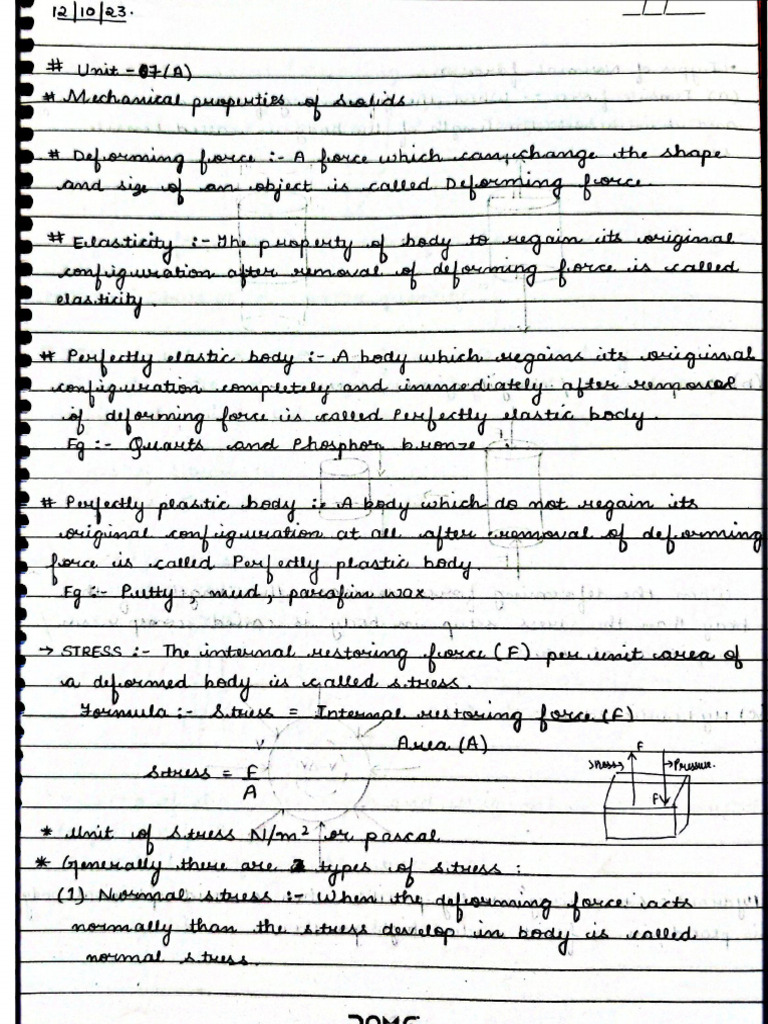 12/10/23.
# Unit - 07(A)
# Mechanical properties of solids
# Deforming force :- A force which can change the shape
and size of an object is called Deforming force.
# Elasticity :- The property of body to regain its original
configuration after removal of deforming force is called
elasticity.
# Perfectly elastic body :- A body which regains its original
configuration completely and immediately after removal
of deforming force is called Perfectly elastic body.
Eg :- Quarts and Phosphor bronze
# Perfectly plastic body :- A body which do not regain its
original configuration at all after removal of deforming
force is called Perfectly plastic body.
Eg :- Putty, mud, parafin wax.
→ STRESS :- The internal restoring force (F) per unit area of
a deformed body is called stress.
Formula :- Stress = Internal restoring force (F)
Area (A)
Stress = F
A
F
Stress
Pressure.
F
* Unit of stress N/m² or pascal
* Generally there are 2 types of stress :
(1) Normal stress :- When the deforming force acts
normally than the stress develop in body is called
normal stress.